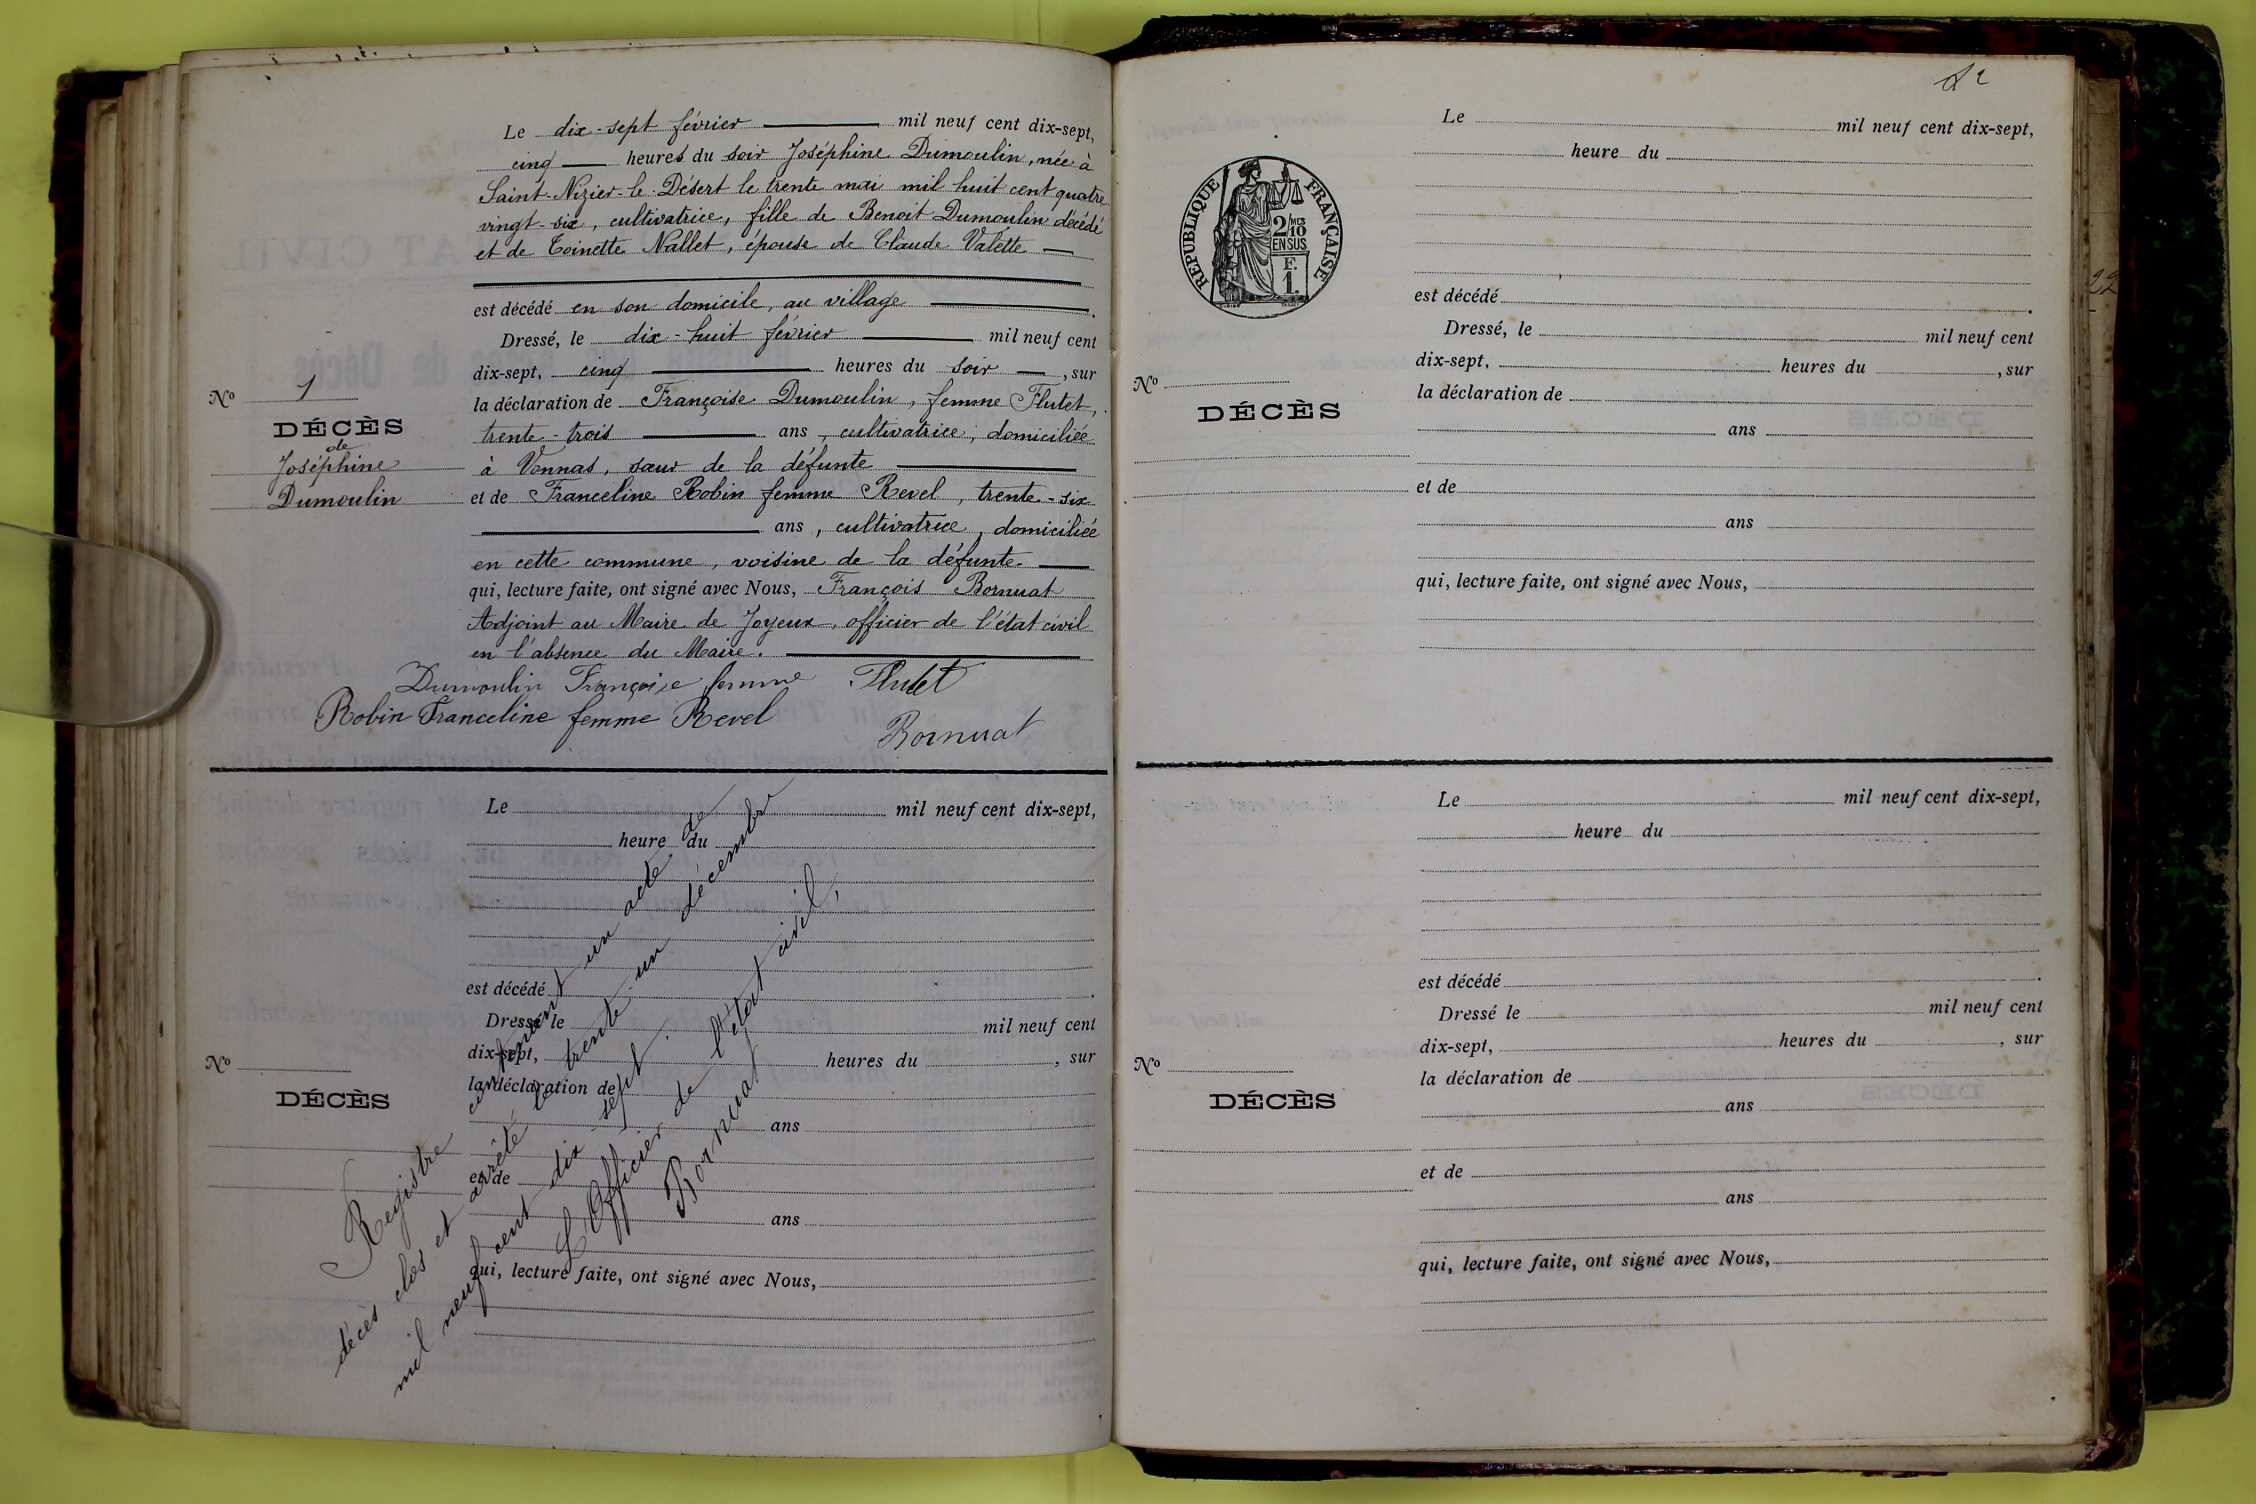 Le dix-sept février mil neuf cent dix-sept,
cinq heures du soir Joséphine Dumoulin, née à
Saint-Nizier-le-Désert le trente mai mil huit cent quatre
vingt-six, cultivatrice, fille de Benoit Dumoulin décédé
et de Toinette Nallet, épouse de Claude Valette
est décédé en son domicile, au village
Dressé, le dix-huit février mil neuf cent
dix-sept, cinq heures du soir, sur
la déclaration de Françoise Dumoulin, femme Flutet,
trente-trois ans, cultivatrice, domiciliée
à Vonnas, sœur de la défunte
et de Franceline Robin femme Revel, trente-six
ans, cultivatrice, domiciliée
en cette commune, voisine de la défunte
qui, lecture faite, ont signé avec Nous, François Bornuat
Adjoint au Maire de Joyeux, officier de l'état civil
en l'absence du Maire.
Dumoulin Françoise femme Flutet
Robin Franceline femme Revel
Bornuat
No 1
DÉCÈS
de
Joséphine
Dumoulin
Le mil neuf cent dix-sept,
heure du
est décédé .
Dressé le mil neuf cent
dix-sept, heures du , sur
la déclaration de
ans
et de
ans
qui, lecture faite, ont signé avec Nous,
No
DÉCÈS
Registre contenant un acte de
décès clos et arrêté le trente-un décembre
mil neuf cent dix-sept.
L'Officier de l'état civil,
Bornuat
RÉPUBLIQUE FRANÇAISE
2/10 MES
EN SUS
F.
1.
Le mil neuf cent dix-sept,
heure du
est décédé .
Dressé, le mil neuf cent
dix-sept, heures du , sur
la déclaration de
ans
et de
ans
qui, lecture faite, ont signé avec Nous,
No
DÉCÈS
Le mil neuf cent dix-sept,
heure du
est décédé .
Dressé le mil neuf cent
dix-sept, heures du , sur
la déclaration de
ans
et de
ans
qui, lecture faite, ont signé avec Nous,
No
DÉCÈS
22